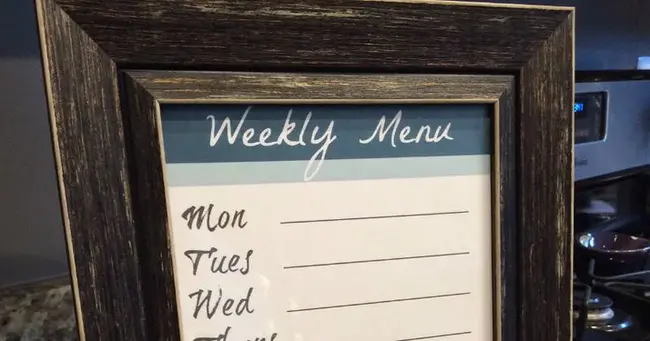 Weekly Menu
Mon
Tues
Wed
Thurs